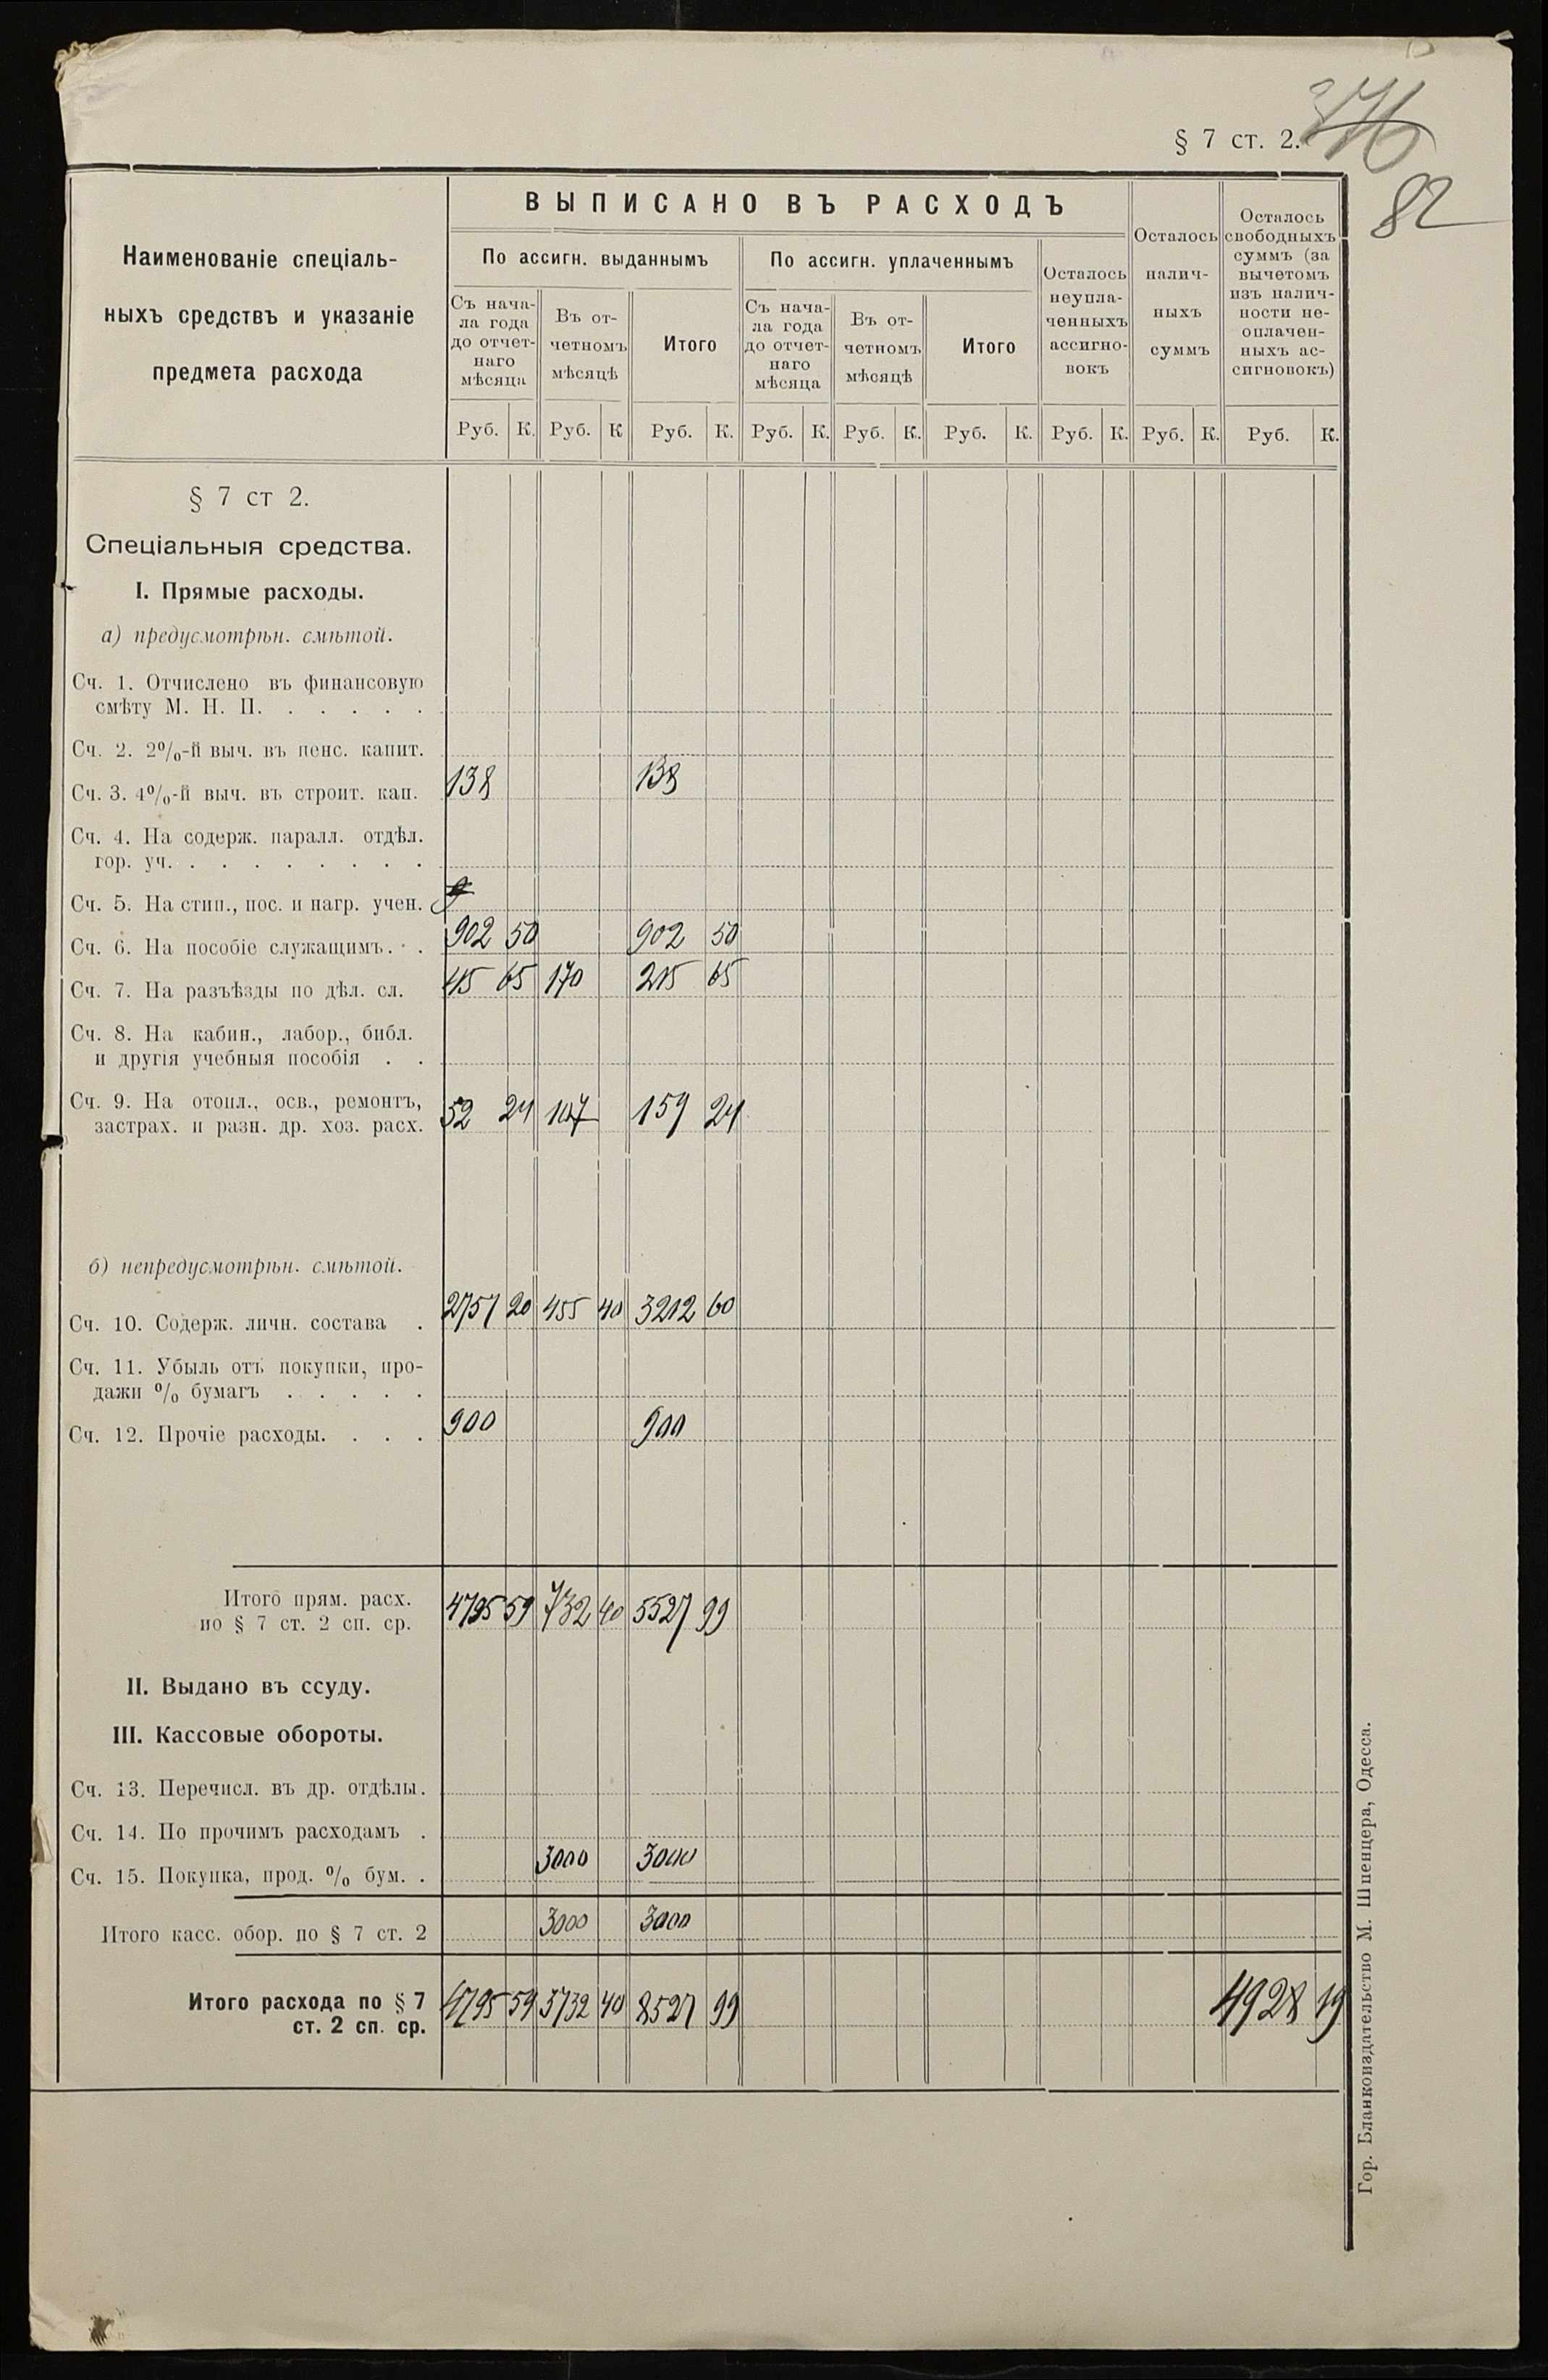 § 7 ст. 2.
82
ВЫПИСАНО ВЪ РАСХОДЪ
Наименованіе спеціаль-
ныхъ средствъ и указаніе
предмета расхода
По ассигн. выданнымъ
По ассигн. уплаченнымъ
Съ нача-
ла года
до отчет-
наго
мѣсяца
Въ от-
четномъ
мѣсяцѣ
Итого
Съ нача-
ла года
до отчет-
наго
мѣсяца
Въ от-
четномъ
мѣсяцѣ
Итого
Осталось
неупла-
ченныхъ
ассигно-
вокъ
Осталось
налич-
ныхъ
суммъ
Осталось
свободныхъ
суммъ (за
вычетомъ
изъ налич-
ности не-
оплачен-
ныхъ ас-
сигновокъ)
Руб. К. Руб. К Руб. К. Руб. К. Руб. К. Руб. К. Руб. К. Руб. К. Руб. К.
§ 7 ст 2.
Спеціальныя средства.
I. Прямые расходы.
а) предусмотрѣн. смѣтой.
Сч. 1. Отчислено въ финансовую
смѣту М. Н. П. . . . . .
Сч. 2. 2%-й выч. въ пенс. капит.
Сч. 3. 4%-й выч. въ строит. кап. 138 138
Сч. 4. На содерж. паралл. отдѣл.
гор. уч. . . . . . . .
Сч. 5. На стип., пос. и нагр. учен.
Сч. 6. На пособіе служащимъ. . . 902 50 902 50
Сч. 7. На разъѣзды по дѣл. сл. 45 65 170 215 65
Сч. 8. На кабин., лабор., библ.
и другія учебныя пособія . .
Сч. 9. На отопл., осв., ремонтъ,
застрах. и разн. др. хоз. расх. 52 24 107 159 24
б) непредусмотрѣн. смѣтой.
Сч. 10. Содерж. личн. состава . 2757 20 455 40 3212 60
Сч. 11. Убыль отъ покупки, про-
дажи % бумагъ . . . . .
Сч. 12. Прочіе расходы. . . . 900 900
Итого прям. расх.
по § 7 ст. 2 сп. ср. 4795 59 732 40 5527 99
II. Выдано въ ссуду.
III. Кассовые обороты.
Сч. 13. Перечисл. въ др. отдѣлы.
Сч. 14. По прочимъ расходамъ .
Сч. 15. Покупка, прод. % бум. . 3000 3000
Итого касс. обор. по § 7 ст. 2 3000 3000
Итого расхода по § 7
ст. 2 сп. ср. 4795 59 3732 40 8527 99 4928 19
Гор. Бланкоиздательство М. Шпенцера, Одесса.